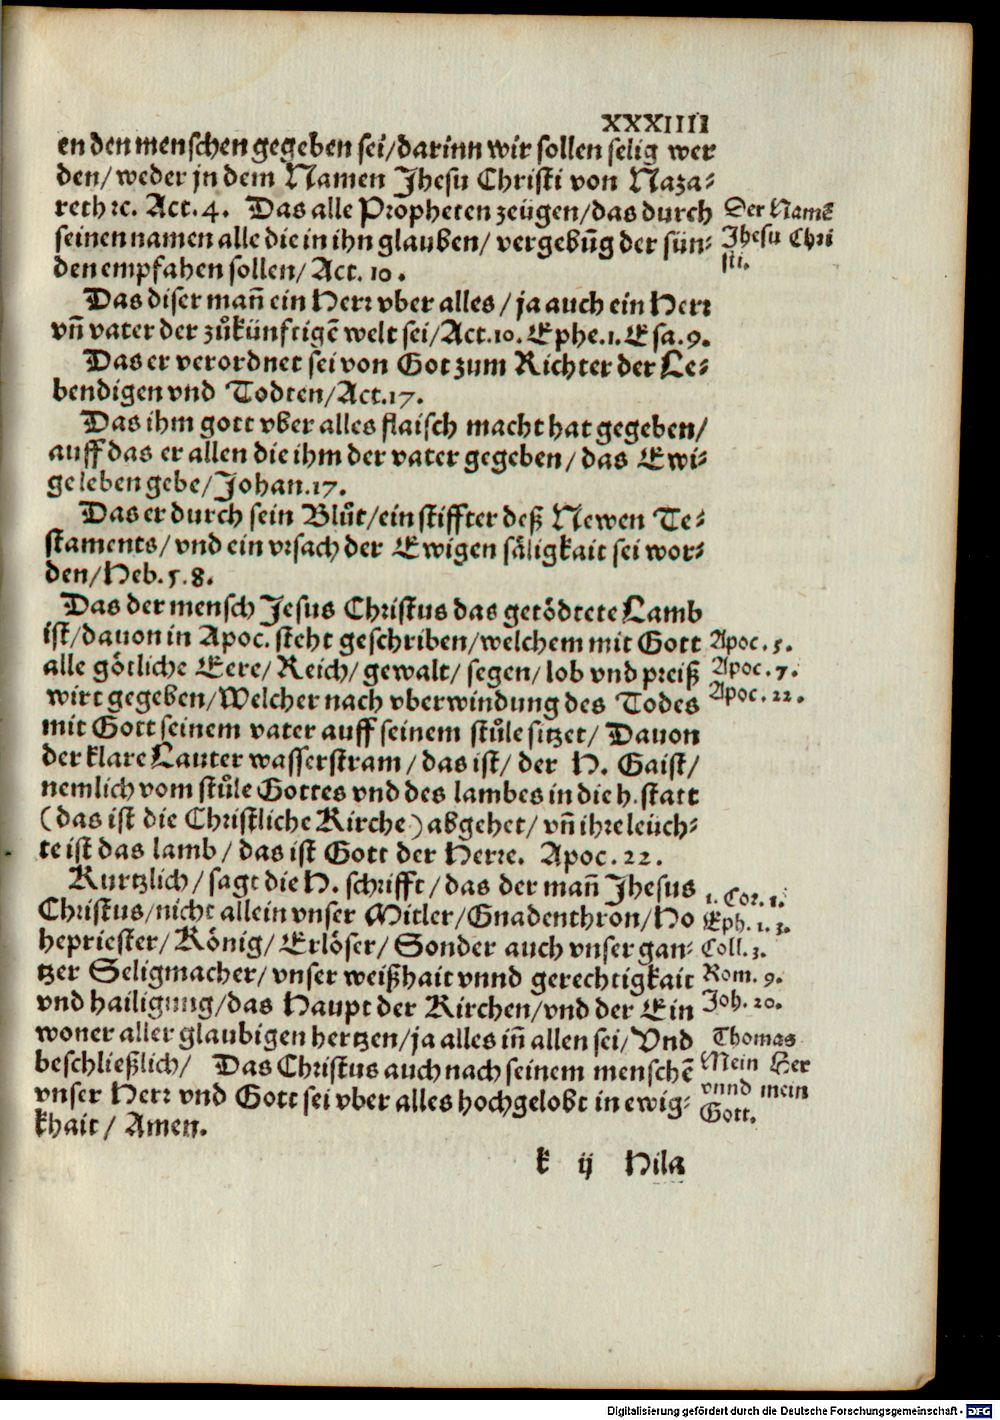 XXXIIII
en den menschen gegeben sei/darinn wir sollen selig wer
den/weder jn dem Namen Jhesu Christi von Naza⸗
reth ꝛc. Act.4. Das alle Propheten zeügen/das durch
seinen namen alle die in ihn glauben/ vergebũg der sün⸗
den empfahen sollen/Act. 10.
Der Namẽ
Jhesu Chri
sti.
Das diser mañ ein Herr vber alles/ja auch ein Herr
vñ vater der zůkünfftigẽ welt sei/Act.10. Ephe.1. Esa.9.
Das er verordnet sei von Got zum Richter der Le⸗
bendigen vnd Todten/Act.17.
Das ihm gott vber alles flaisch macht hat gegeben/
auff das er allen die ihm der vater gegeben/das Ewi⸗
ge leben gebe/Johan.17.
Das er durch sein Blůt/ein stiffter deß Newen Te⸗
staments/vnd ein vrsach der Ewigen säligkait sei wor⸗
den/Heb.5.8.
Das der mensch Jesus Christus das getödtete Lamb
ist/dauon in Apoc. steht geschriben/welchem mit Gott
alle götliche Eere/Reich/gewalt/segen/lob vnd preiß
wirt gegeben/Welcher nach vberwindung des Todes
mit Gott seinem vater auff seinem stůle sitzet/ Dauon
der klare Lauter wasserstram/das ist/ der H. Gaist/
nemlich vom stůle Gottes vnd des lambes in die h. statt
(das ist die Christliche Kirche) abgehet/vñ ihre leüch⸗
te ist das lamb/das ist Gott der Herre. Apoc.22.
Apoc.5.
Apoc.7.
Apoc.22.
Kurtzlich/sagt die H. schrifft/das der mañ Jhesus
Christus/nicht allein vnser Mitler/Gnadenthron/Ho
hepriester/König/Erlöser/Sonder auch vnser gan⸗
tzer Seligmacher/vnser weißhait vnnd gerechtigkait
vnd hailigung/das Haupt der Kirchen/vnd der Ein
woner aller glaubigen hertzen/ja alles iñ allen sei/Vnd
beschließlich/ Das Christus auch nach seinem menschẽ
vnser Herr vnd Gott sei vber alles hochgelobt in ewig⸗
khait/Amen.
1. Cor.1.
Eph.1.3.
Coll.3.
Rom.9.
Joh.20.
Thomas
Mein Her
vnnd mein
Gott.
k ij Hila
Digitalisierung gefördert durch die Deutsche Forschungsgemeinschaft - DFG